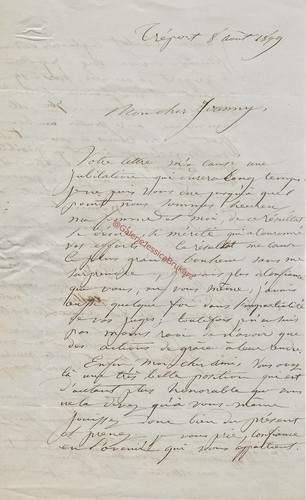 Tréport 8 août 1869
Mon cher Joanny,
Votre lettre m'a causé une
jubilation qui durera longtemps.
Je ne puis vous dire jusqu'à quel
point nous sommes heureux
ma femme et moi, de ce résultat
si désiré, si mérité qui a couronné
vos efforts. Ce résultat me cause
le plus grand bonheur sans me
surprendre, j'avais plus de confiance
que vous, en vous même, j'avais
aussi quelque foi dans l'impartialité
de vos juges; toutefois je
pas moins ravi de n'avoir que
des actions de grâce à leur rendre.
Enfin mon cher ami, vous voyez
là une très belle position qui est
d'autant plus honorable que vous
ne la devez qu'à vous-même
Jouissez donc bien du présent
et prenez, je vous prie, confiance
en l'avenir qui vous appartient.
@GalerieJessicaBrukarz